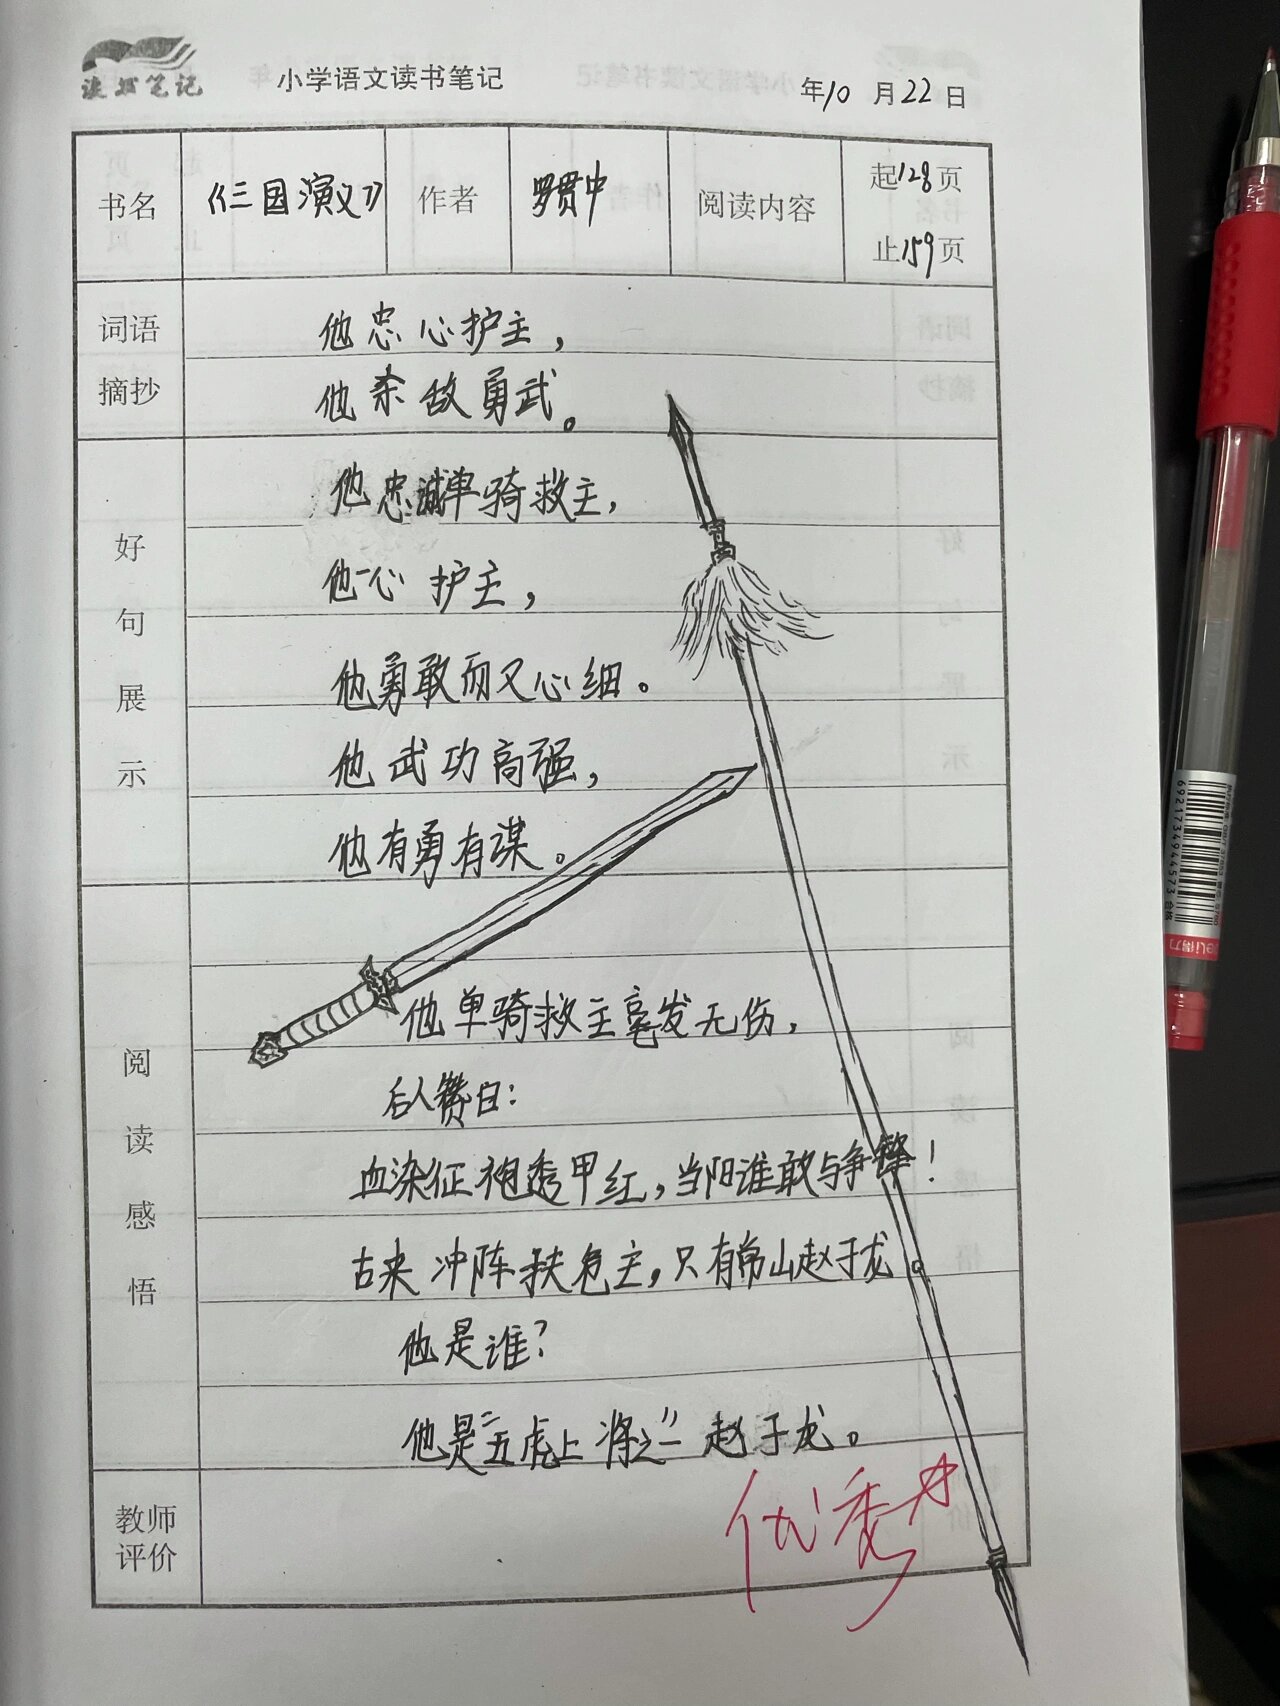 读书笔记
小学语文读书笔记
年10月22日
书名 《三国演义》 作者 罗贯中 阅读内容 起128页
止159页
词语
摘抄
他忠心护主，
他杀敌勇武。
好句展示
他忠诚单骑救主，
他一心护主，
他勇敢而又心细。
他武功高强，
他有勇有谋。
阅读感悟
他单骑救主毫发无伤，
后人赞曰：
血染征袍透甲红，当阳谁敢与争锋！
古来冲阵扶危主，只有常山赵子龙。
他是谁？
他是“五虎上将之一”赵子龙。
教师
评价
优秀
6921734944573
合格
deli得力